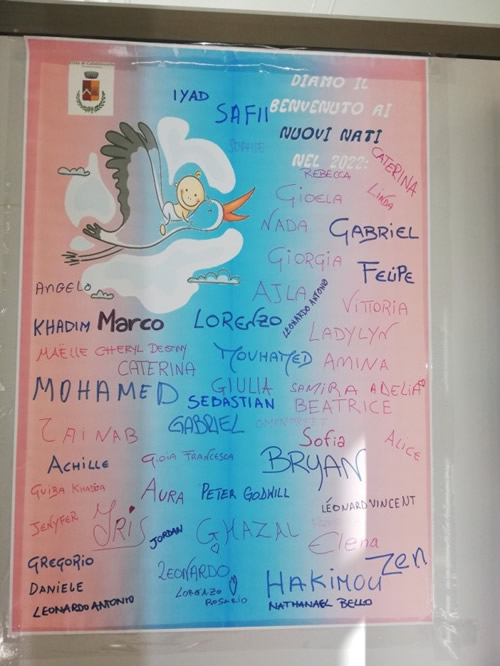 DIAMO IL
BENVENUTO AI
NUOVI NATI
NEL 2022:
IYAD
SAFII
SOPHIE
REBECCA
CATERINA
LINDA
GIOELA
NADA
GABRIEL
GIORGIA
FELIPE
ANGELO
AJLA
LEONARDO ANTONIO
VITTORIA
KHADIM
Marco
LORENZO
LADYLYN
MAËLLE CHERYL DESTINY
CATERINA
MOUHAMED
AMINA
MOHAMED
GIULIA
SAMIRA ADELIA
SEBASTIAN
BEATRICE
ZAINAB
GABRIEL
Sofia
ALICE
ACHILLE
GIOIA FRANCESCA
BRYAN
GUIBA KHADIJA
AURA
PETER GODWILL
LÉONARD VINCENT
JENYFER
IRIS
JORDAN
GHAZAL
Elena
GREGORIO
LEONARDO
HAKIMOU
ZEN
DANIELE
LORENZO
ROSARIO
LEONARDO ANTONIO
NATHANAEL BELLO